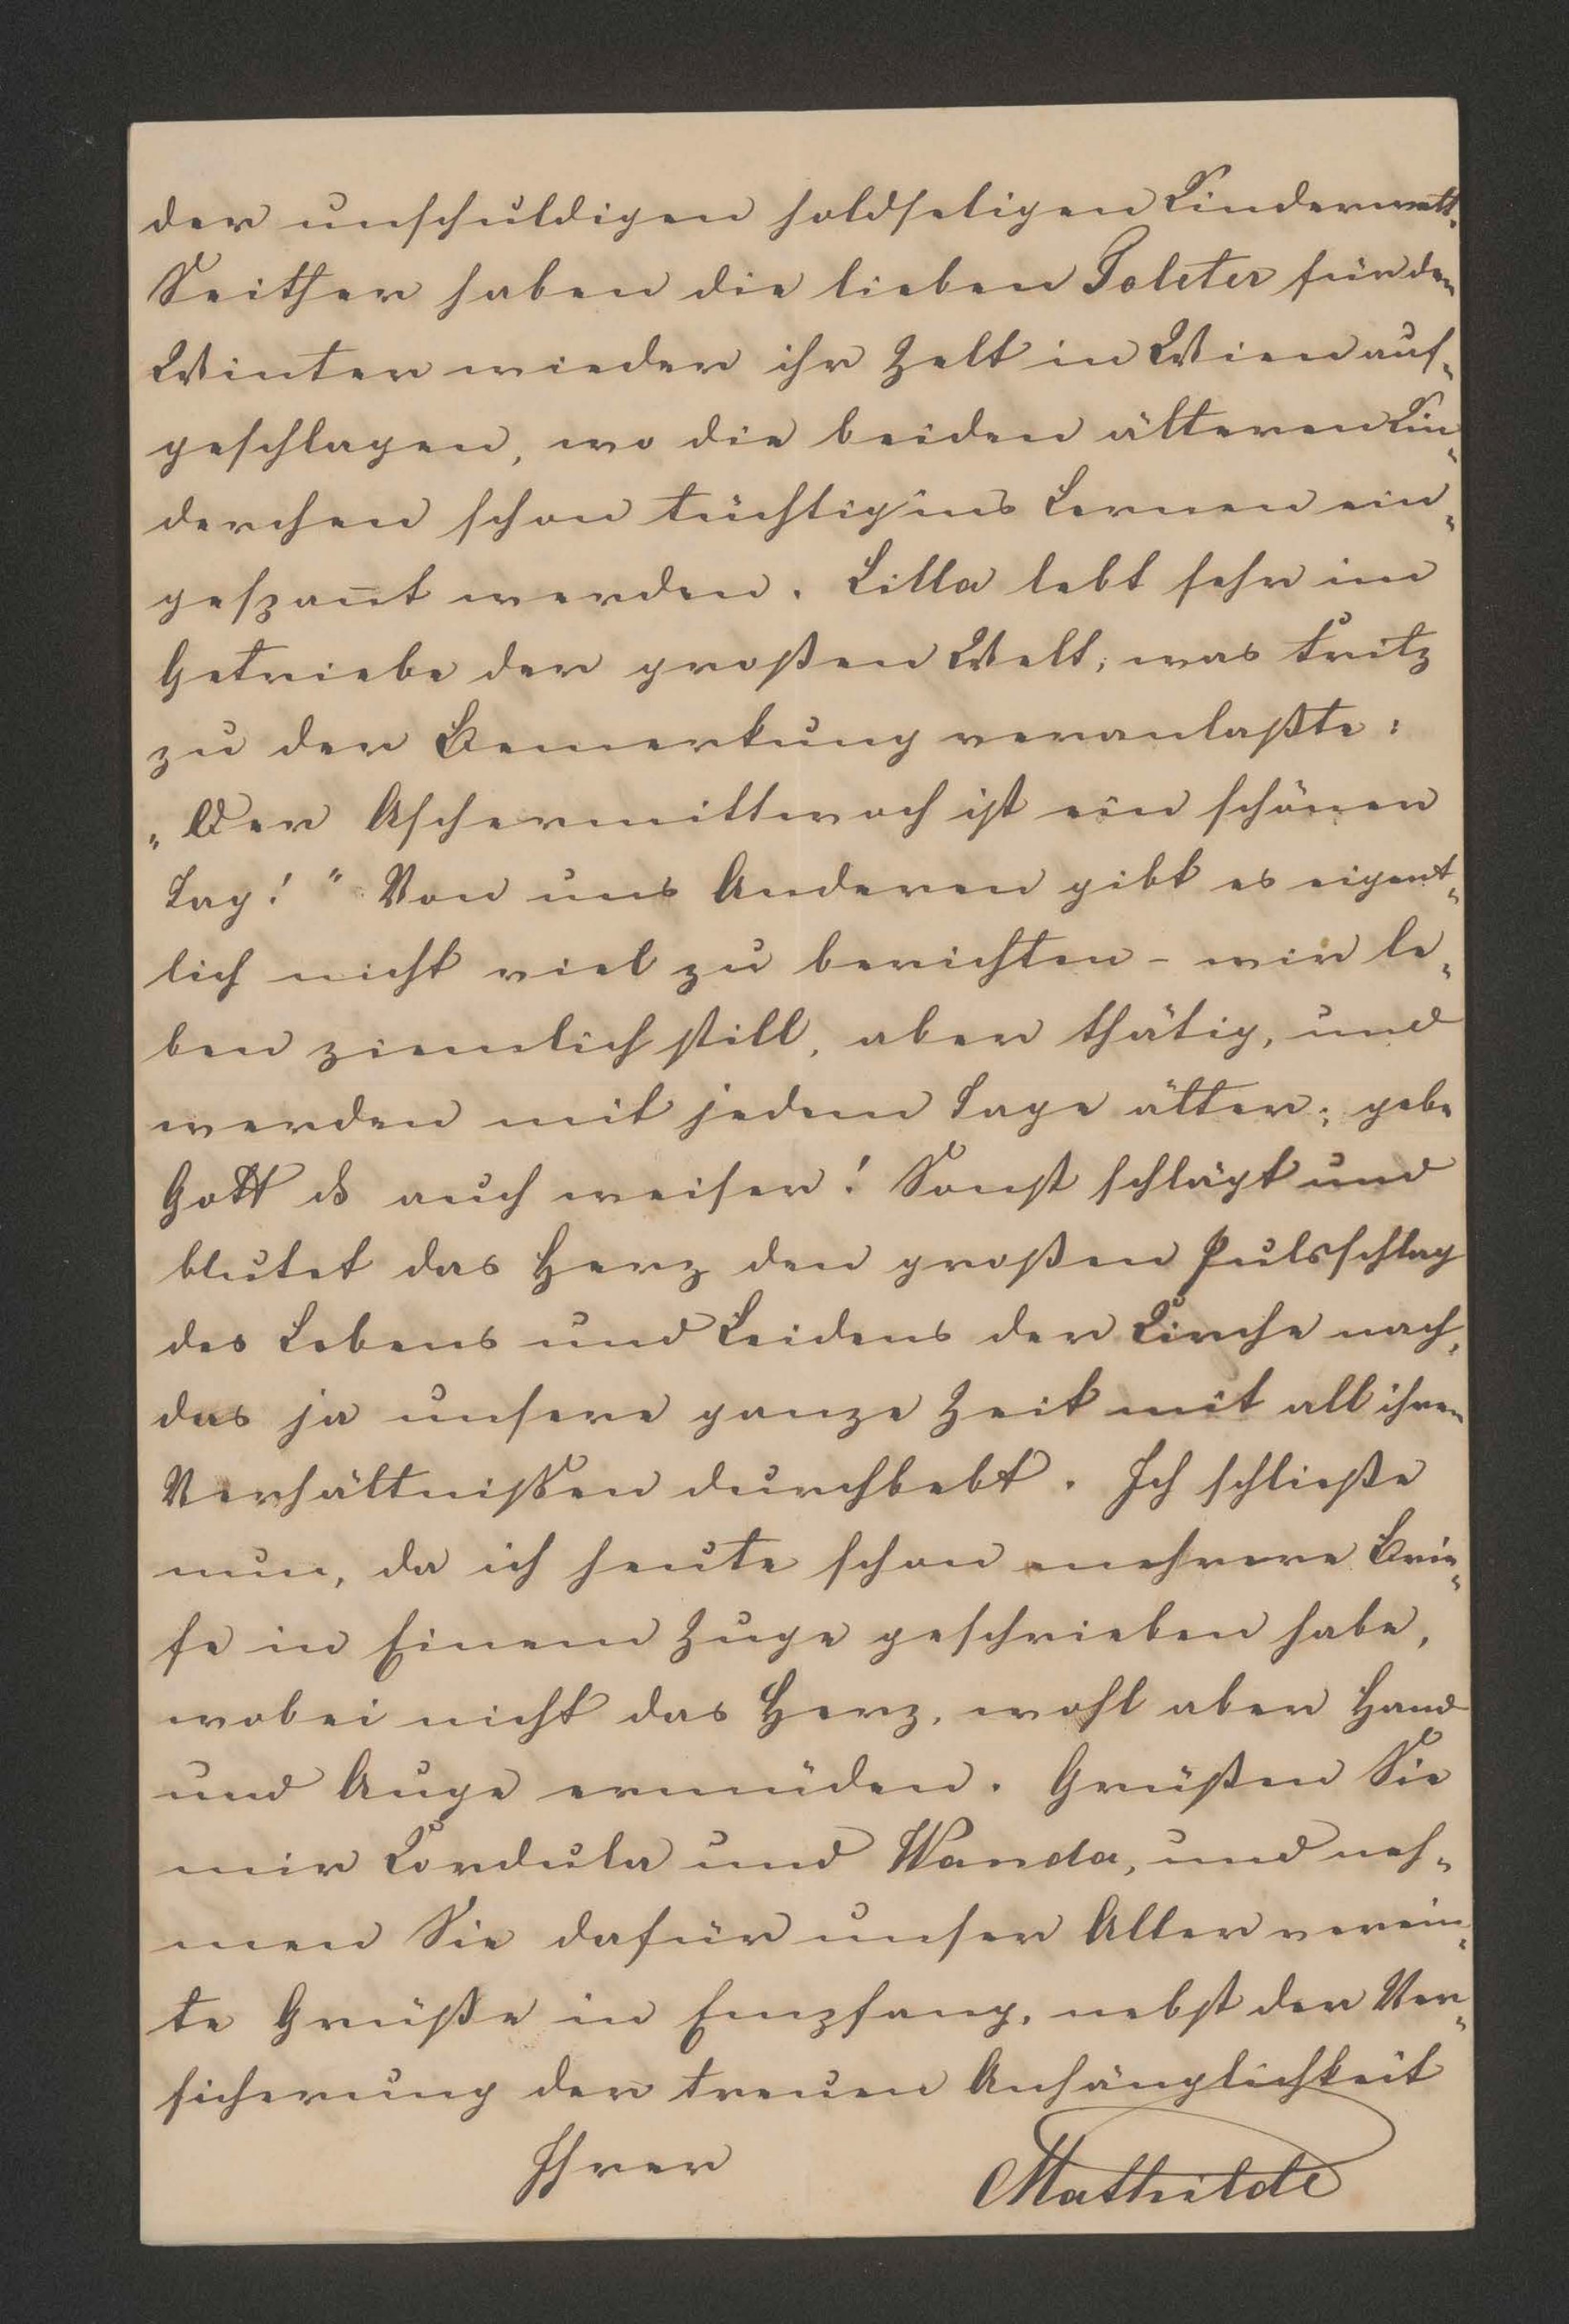 der unschuldigen holdseligen Kinderwelt.
Seither haben die lieben Toleter für den
Winter wieder ihr Zelt in Wien auf-
geschlagen, wo die beiden älteren Kin-
derchen schon tüchtig ins Lernen ein-
gespan̄t werden. Lilla lebt sehr im
Getriebe der großen Welt, was Fritz
zu der Bemerkung veranlaßte:
„Der Aschermittwoch ist ein schöner
Tag!" Von uns Anderen gibt es eigent-
lich nicht viel zu berichten - wir le-
ben ziemlich still, aber thätig, und
werden mit jedem Tage älter; gebe
Gott es auch weiser! Sonst schlägt und
blutet das Herz den großen Pulsschlag
des Lebens und Leidens der Kirche nach,
das ja unsere ganze Zeit mit all ihren
Verhältnißen durchbebt. Ich schließe
nun, da ich heute schon mehrere Brie-
fe in Einem Zuge geschrieben habe,
wobei nicht das Herz, wohl aber Hand
und Auge ermüden. Grüßen Sie
mir Cordula und Wanda, und neh-
men Sie dafür unser Aller verein-
te Grüße in Empfang, nebst der Ver-
sicherung der treuen Anhänglichkeit
Ihrer Mathilde